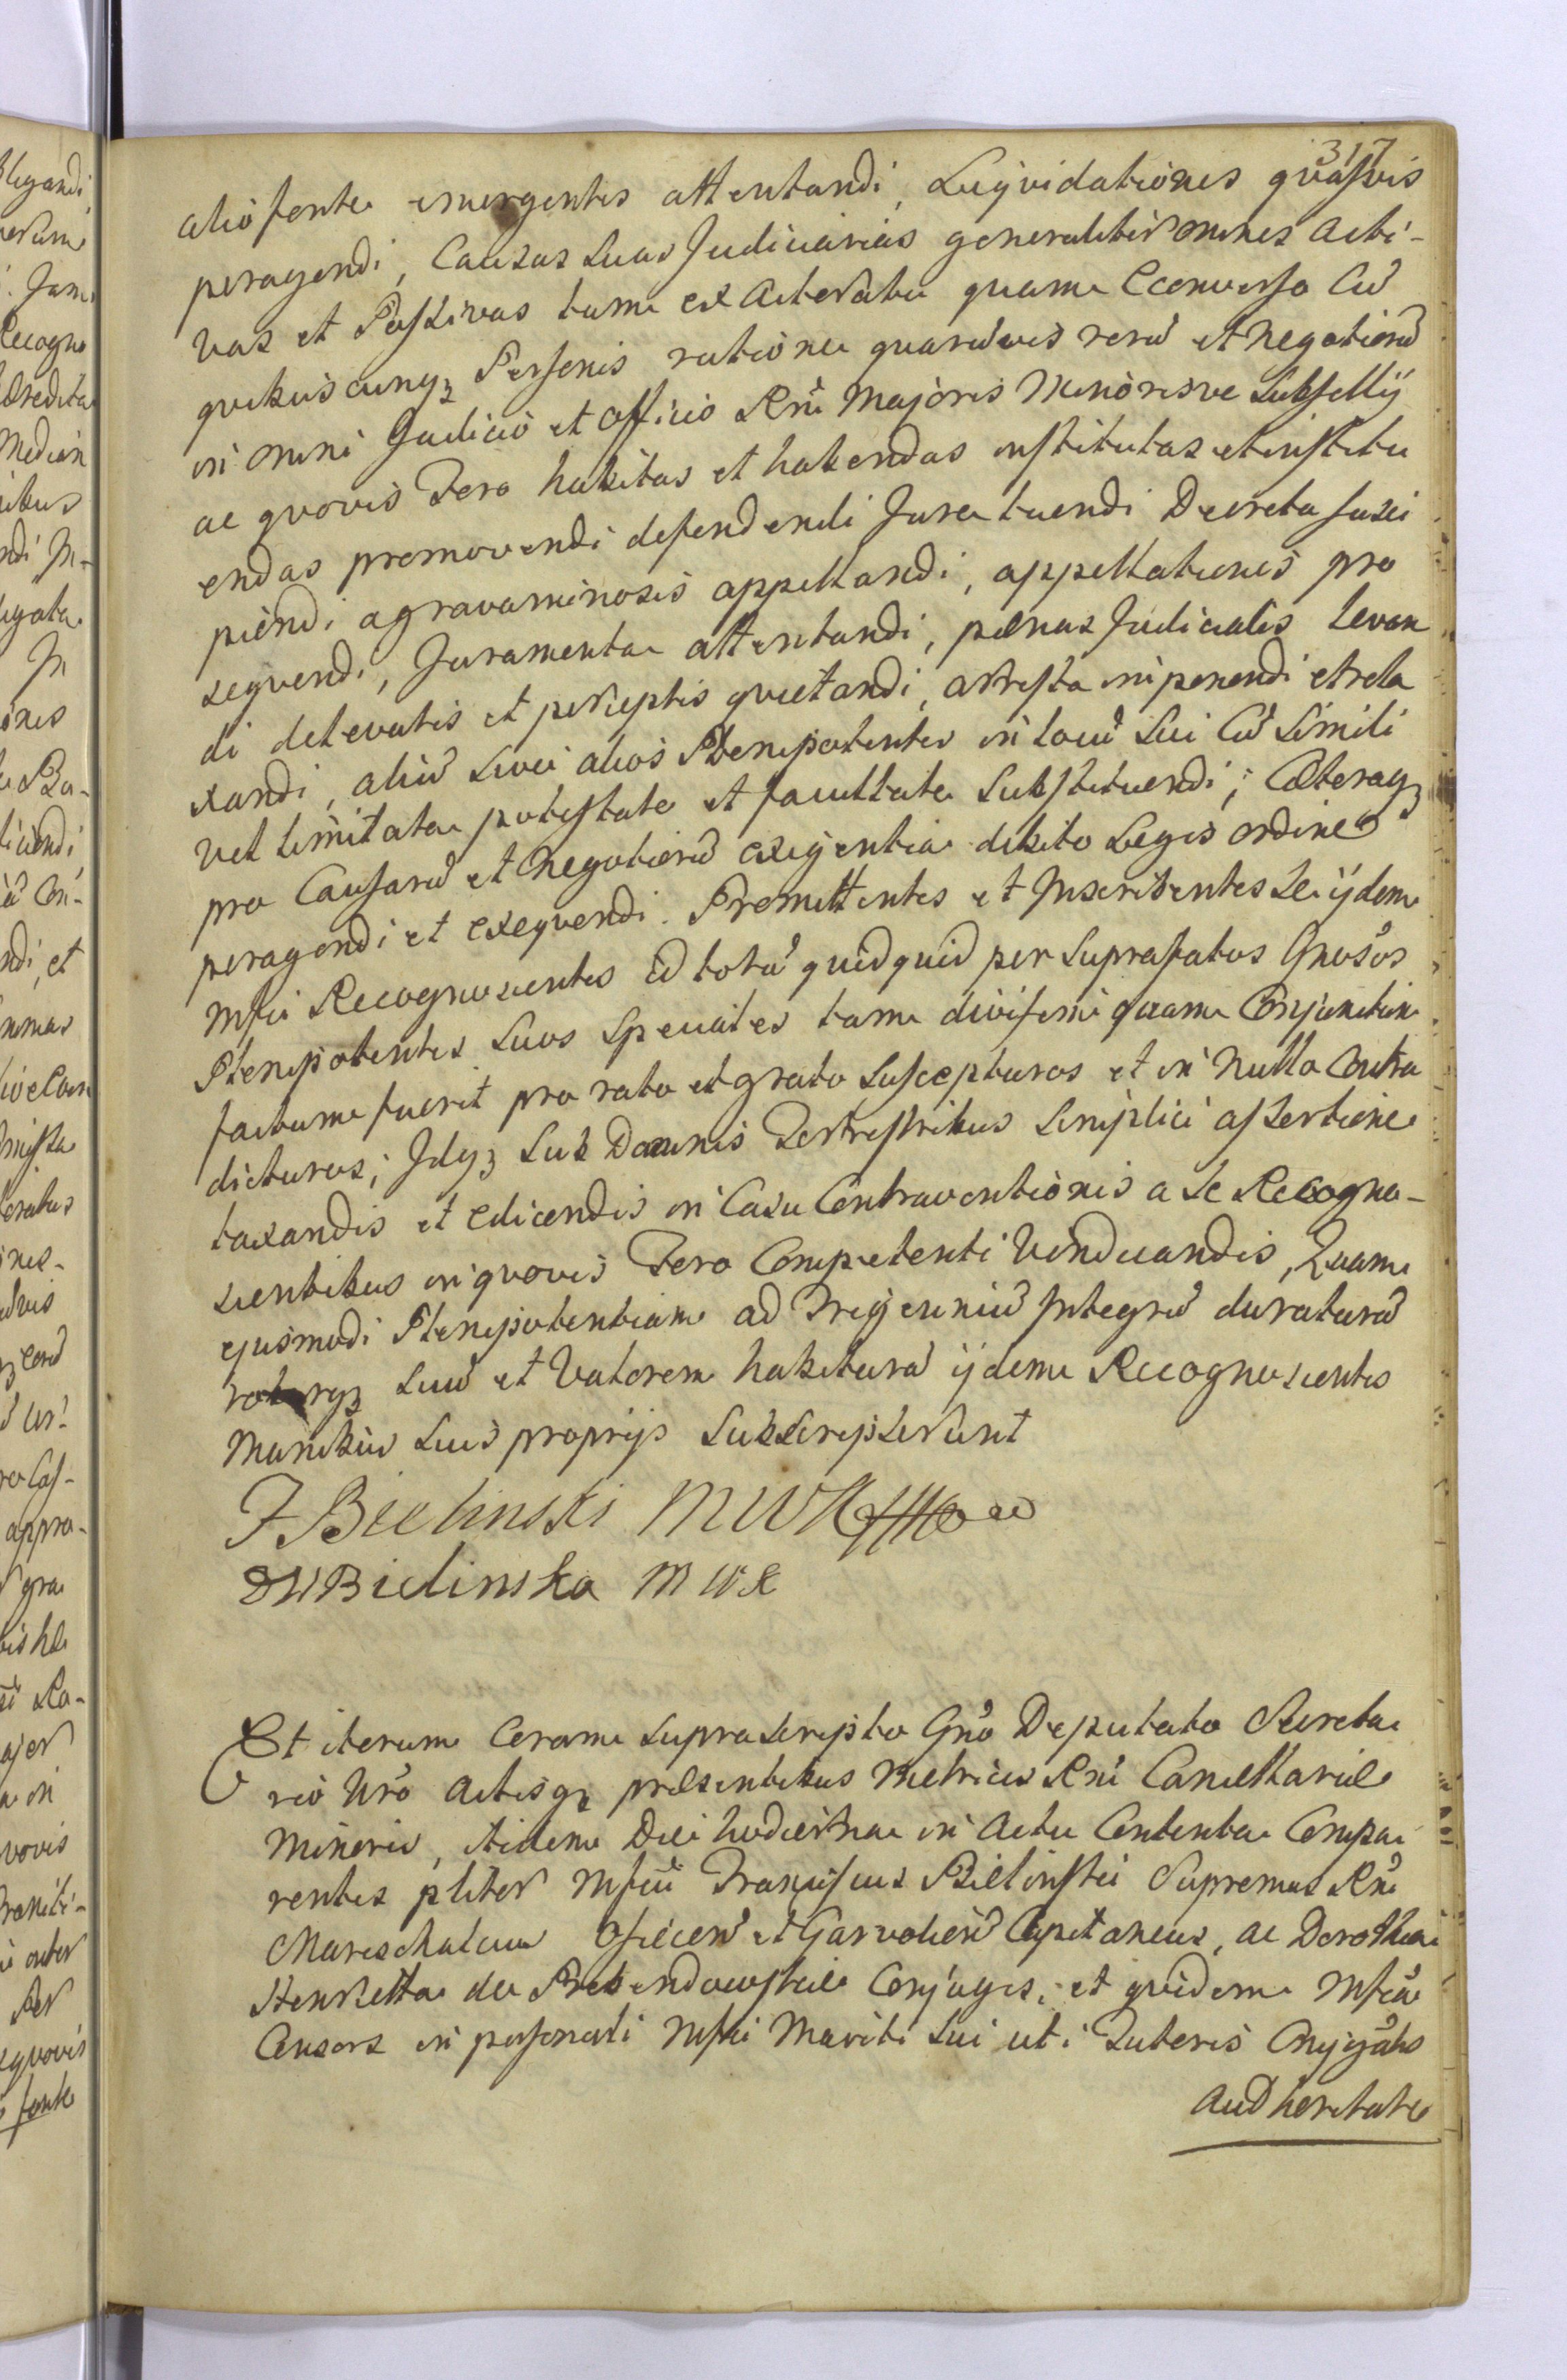 317
alio fonte emergentes attentandi, Liqvidationes qvasvis
peragendi, Causas Suas Judiciarias generaliter omnes Acti-
vas et Passivas tam ex Actoratu quam Econverso Cũ
qvibuscunqꝫ Personis ratione quarũvis rerũ et negotiorũ
in omni Judicio et officio Rñi Majoris Minorisve Subsellÿ
ac qvovis Foro habitas et habendas institutas et institu
endas promovendi defendendi Jura tuendi Decreta susci
piendi agravaminosis appellandi, appellationes pro
seqvendi, Juramenta attentandi, pænas Judiciales levan
di de levatis et perceptis qvietandi, arresta imponendi et rela
xandi, aliũ Sive alios Plenipotentes in locũ Sui Cũ Simili
vel limitata potestate et facultate Substituendi; Cæteraqꝫ
pro Causarũ et Negotiorũ exigentia debito Legis ordine
peragendi et exeqvendi. Promittentes et Inscribentes Se ÿdem
Mfci Recognoscentes id totũ qvidqvid per Suprafatos Gnosos
Plenipotentes Suos Speciales tam divisim quam Conjunctim
factum fuerit pro rato et grato Suscepturos et in nullo Contra
dicturos; Idqꝫ Sub Damnis Terrestribus Simplici assertione
taxandis et edicendis in Casu Contraventionis a Se Recogno-
scentibus in qvovis Foro Competenti Vindicandis, Quam
ejusmodi Plenipotentiam ad Triennium Integrũ duraturã
roburqꝫ Suũ et Valorem habiturã ÿdem Recognoscentes
Manibus Suis proprÿs Subscripserunt
F Bielinski M W K
DH Bielinska M W K
Et iterum Coram Suprascripto Gño Deputato Secreta
rio Nro Actisqꝫ præsentibus Metrices Rñi Cancellariæ
Minoris, itidem Die hodierna in Actu Contenta Compa
rentes pliter Mfcũs Franciscus Bielinski Supremus Rñi
Mareschalcus Osiecen̄ et Garvolien̄ Capitaneus, ac Dorothea
Henrietta de Prebendowskie Conjuges, et qvidem Mfca
Consors in personali Mfci Mariti Sui uti Tutoris Conjgãlis
Authoritate